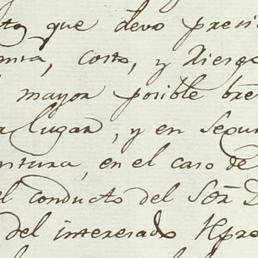 que devo presi
enta, costo, y Riesgo
mayor posible bre
lugar, y en segun
ritura, en el caso de
el conducto del Sor. D
del interesado